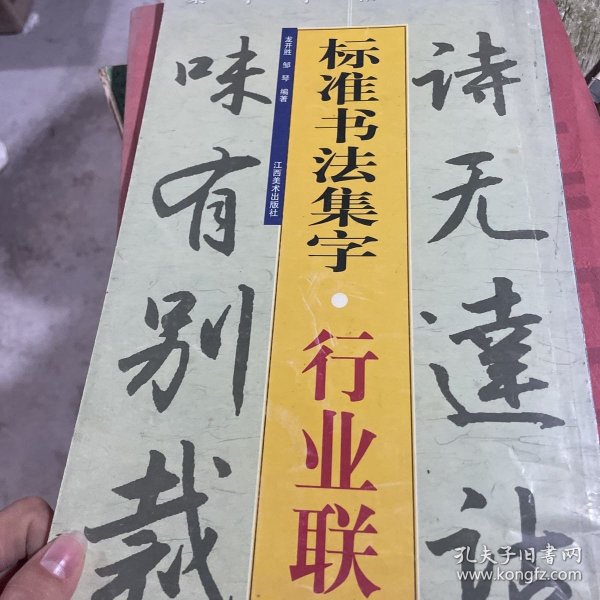 标准书法集字·行业联
龙开胜 邹琴 编著
江西美术出版社
诗无達诂
味有别裁
孔夫子旧书网
www.kongfz.com